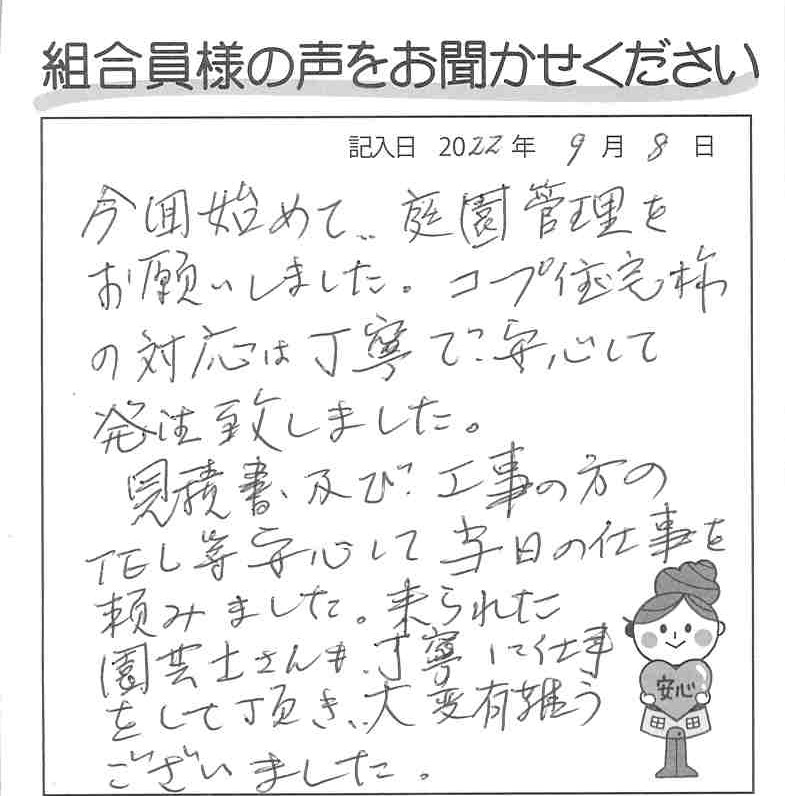 組合員様の声をお聞かせください
記入日 2022年 9月 8日
今回始めて、庭園管理を
お願いしました。コープ住宅様
の対応は丁寧で安心して
発注致しました。
見積書、及び工事の方の
TEL等安心して当日の仕事を
頼みました。来られた
園芸士さんも、丁寧に仕事
をして頂き、大変有難う
ございました。
安心